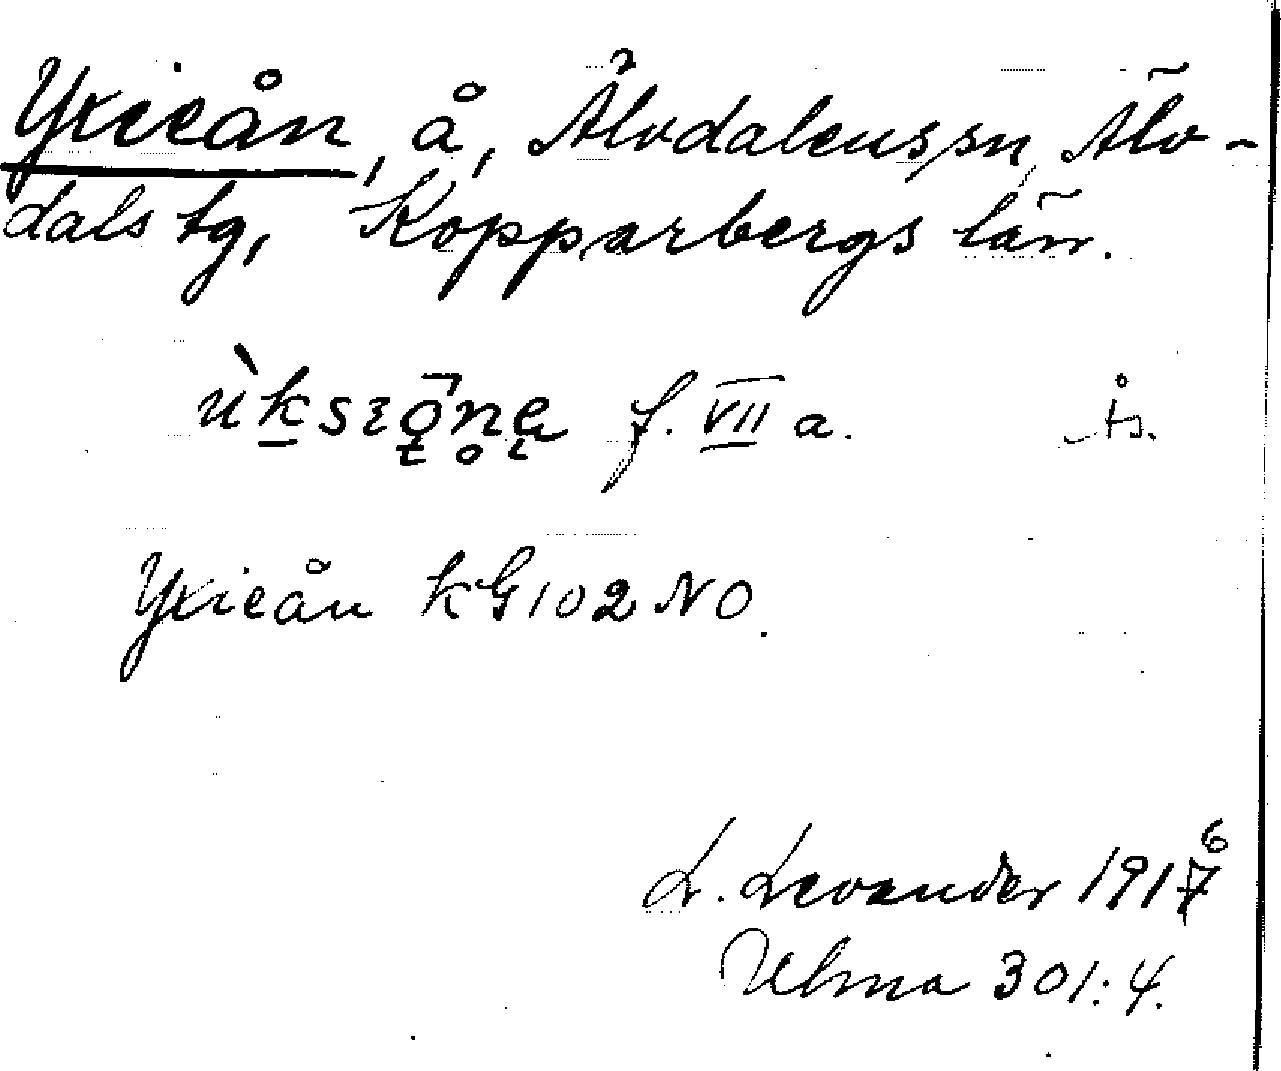 Yxieån, å, Älvdalens sn, Älv-
dals tg, Kopparbergs län.
f. VII a. ts.
Yxieån KG 102 NO.
6
L. Levander 1917
Ulma 301:4.